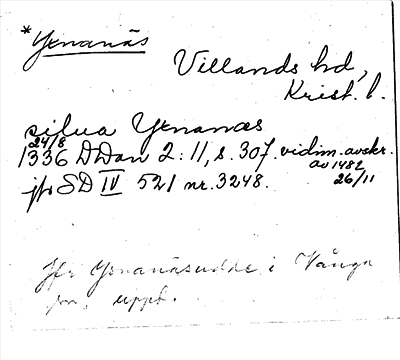 *Yenanäs
Villands hd,
Krist. l.
silua Yenanæs
24/8
1336 DDan 2:11, s. 307. vidim. avskr.
av 1482
jfr SD IV 521 nr. 3248. 26/11
Jfr Yenanäsudde i Vånga
sn, uppt.